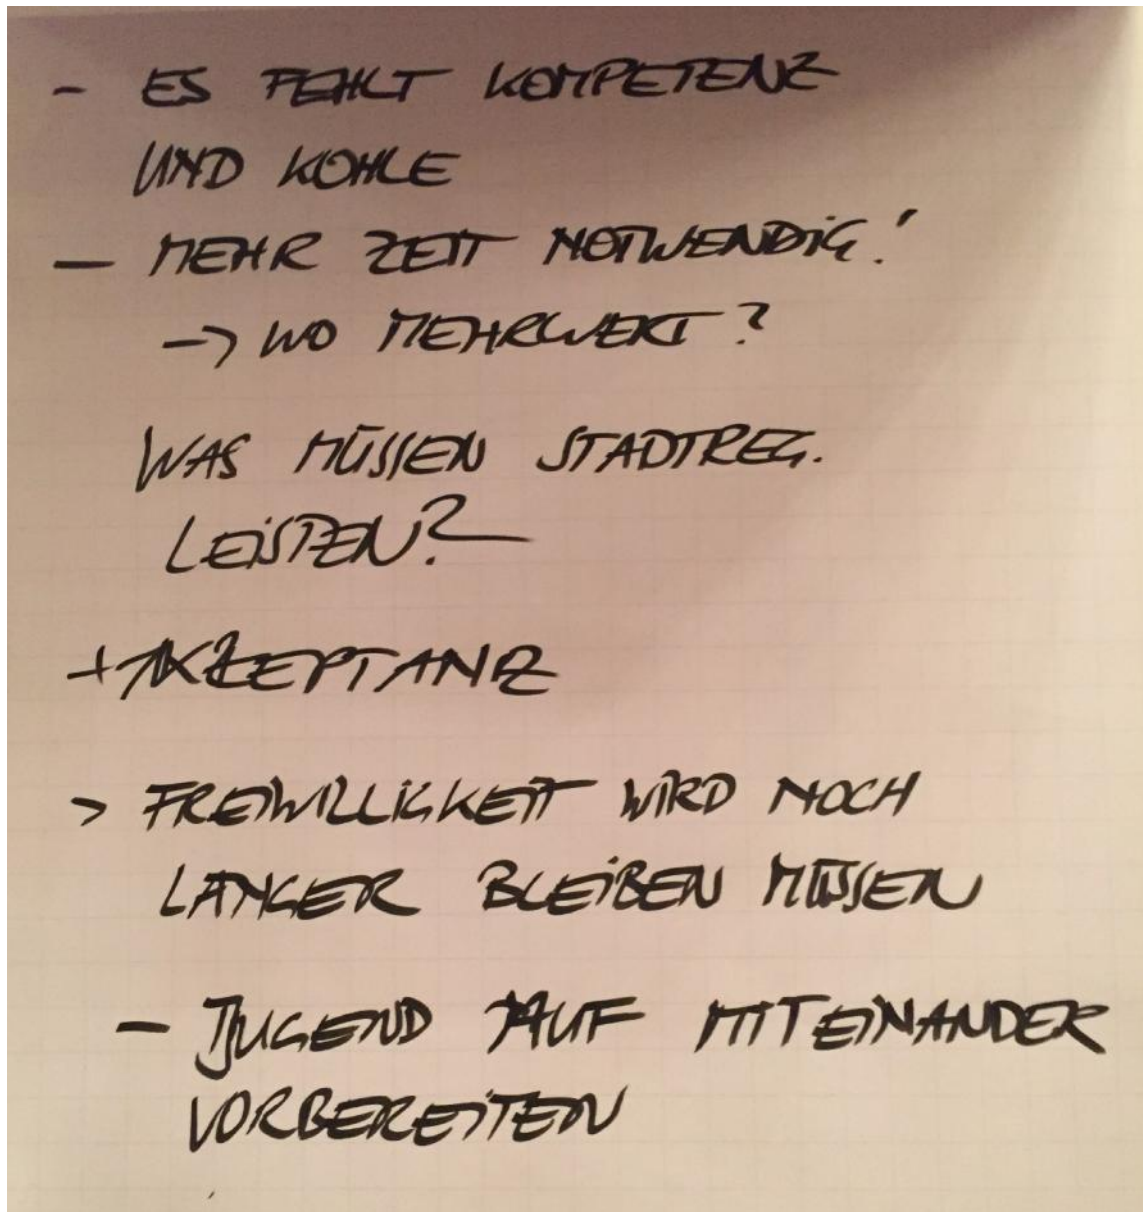 - ES FEHLT KOMPETENZ
UND KOHLE
- MEHR ZEIT NOTWENDIG!
-> WO MEHRWERT?
WAS MÜSSEN STADTREG.
LEISTEN?
+ AKZEPTANZ
> FREIWILLIGKEIT WIRD NOCH
LANGER BLEIBEN MÜSSEN
- JUGEND AUF MITEINANDER
VORBEREITEN